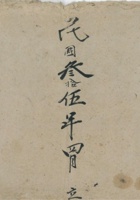 民國叁拾伍年四月 立